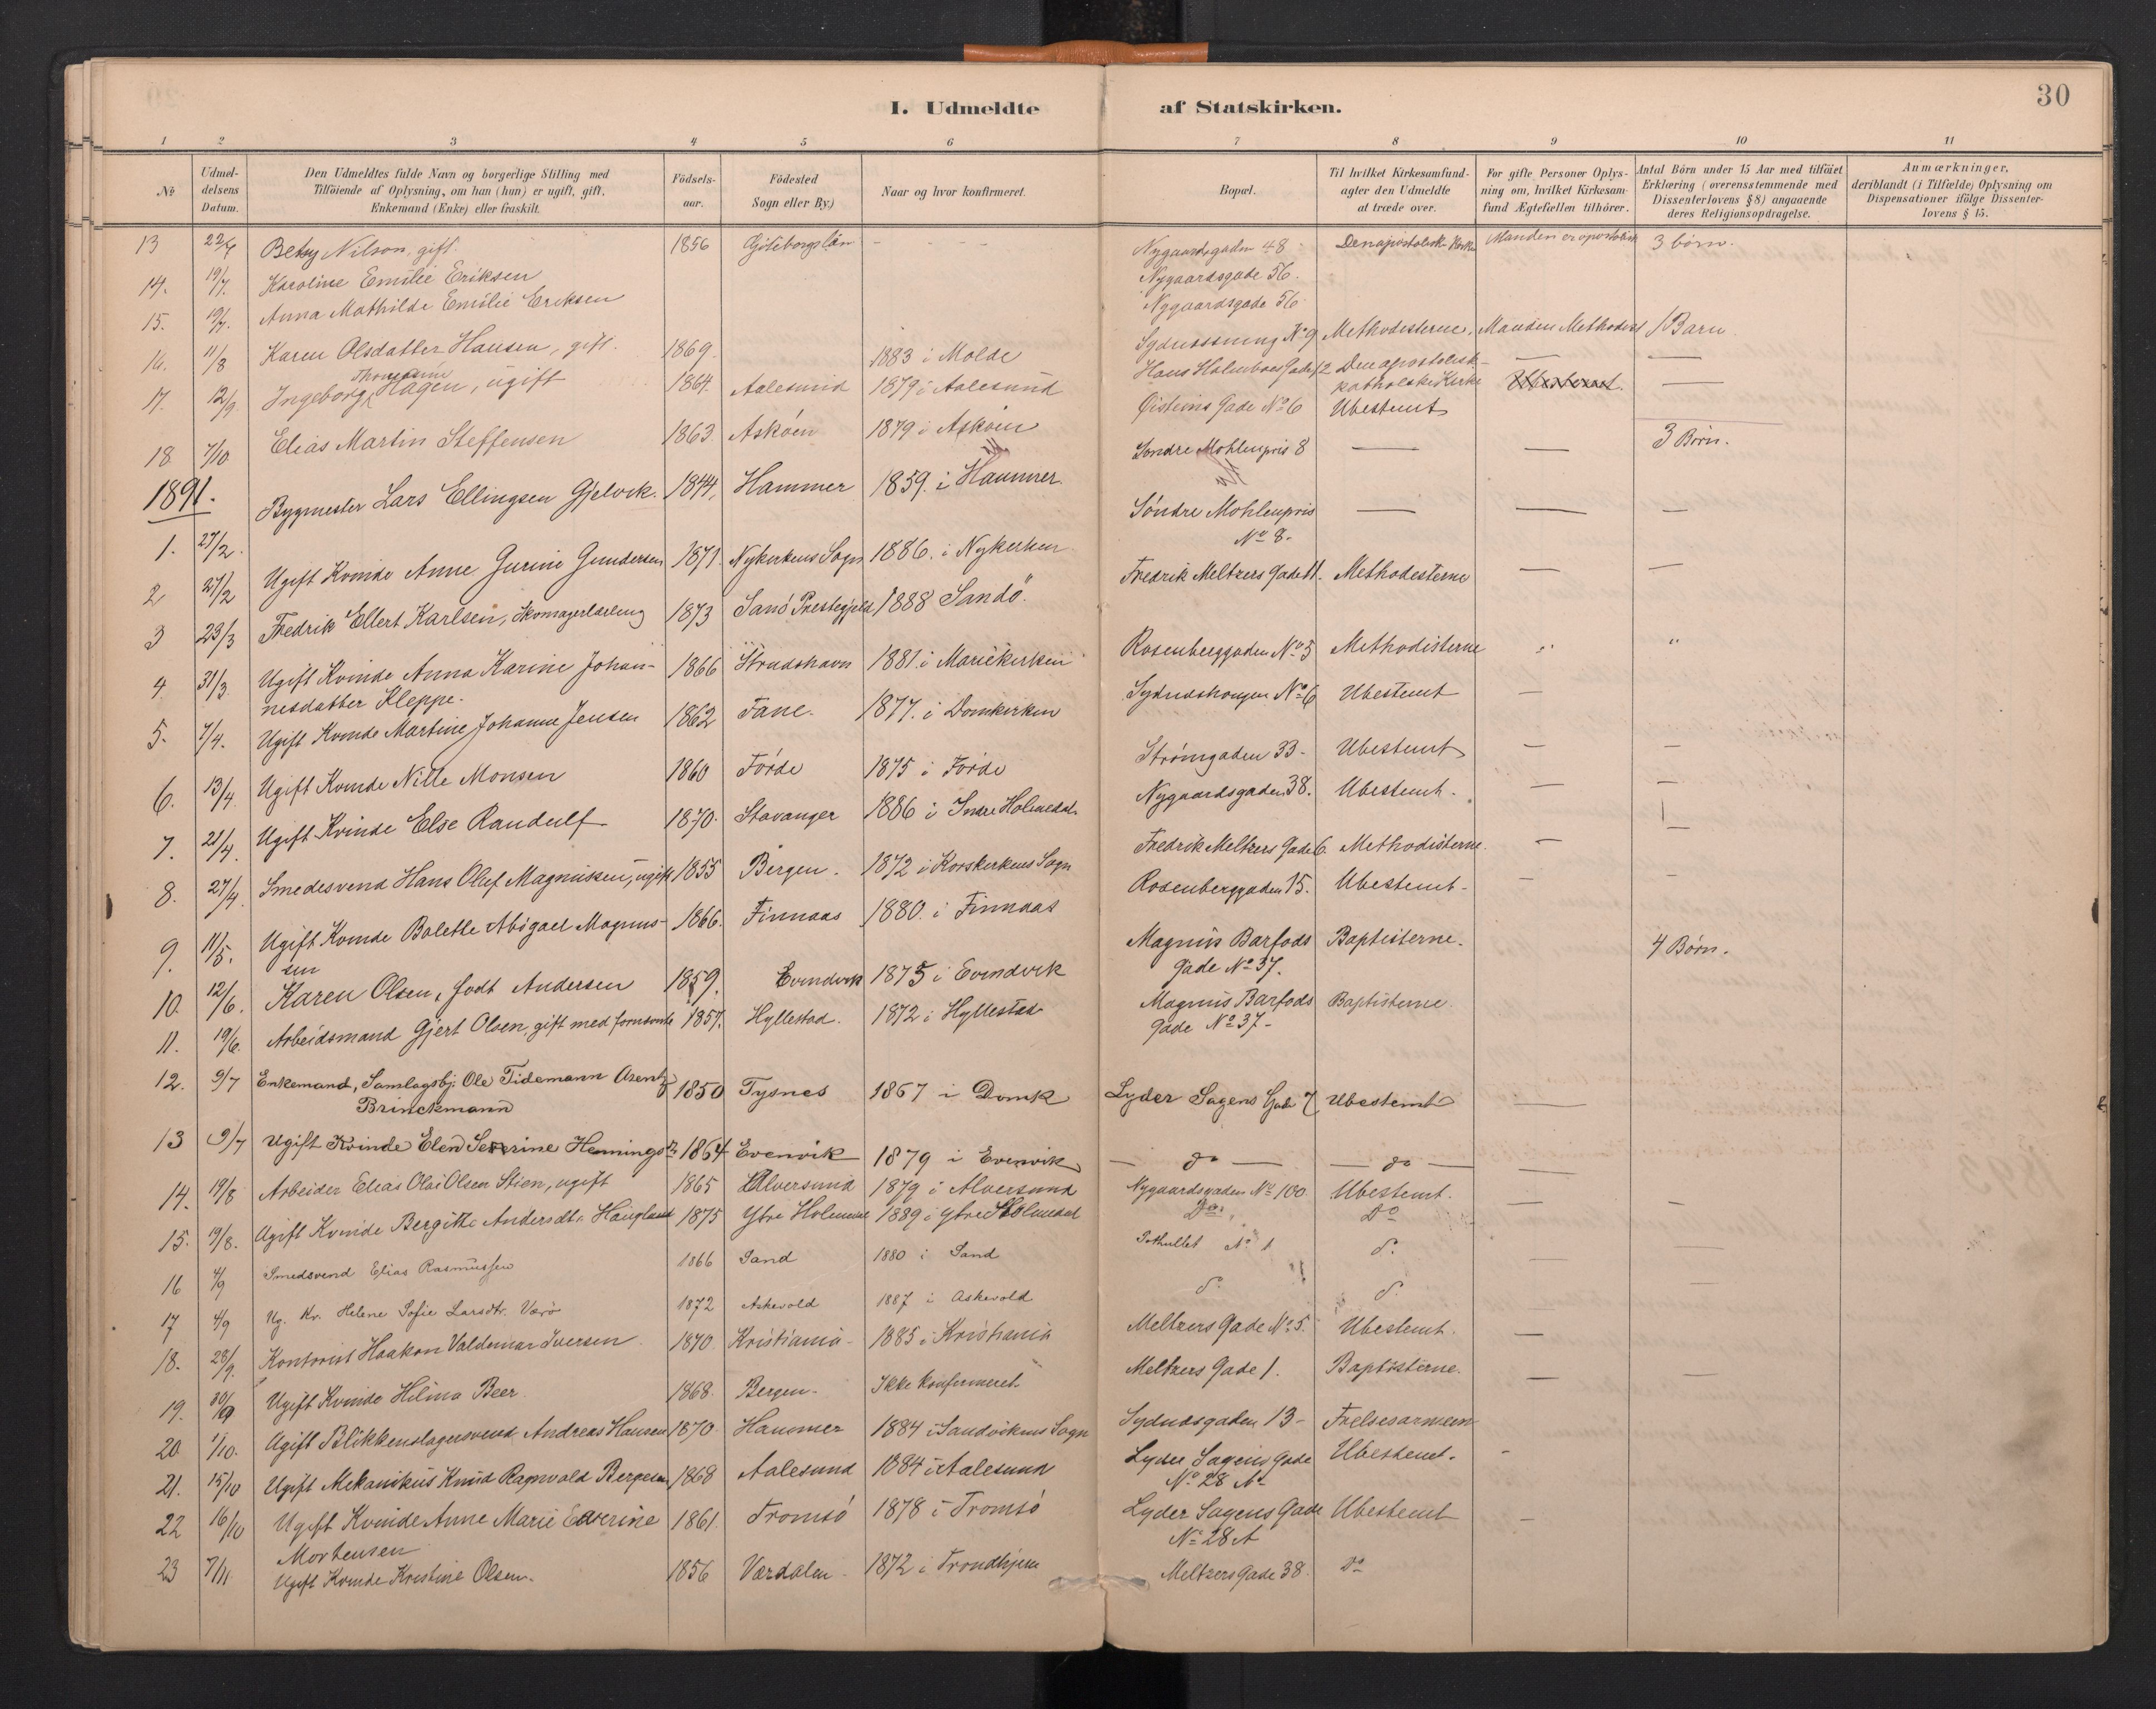 30
I. Udmeldte af Statskirken.
1 2 3 4 5 6 7 8 9 10 11
№
Udmeldelsens Datum.
Den Udmeldtes fulde Navn og borgerlige Stilling med
Tilföiende af Oplysning, om han (hun) er ugift, gift,
Enkemand (Enke) eller fraskilt.
Födselsaar.
Födested
Sogn eller By.)
Naar og hvor konfirmeret.
Bopæl.
Til hvilket Kirkesamfund
agter den Udmeldte
at træde over.
For gifte Personer Oplysning om, hvilket Kirkesamfund Ægtefællen tilhörer.
Antal Börn under 15 Aar med tilföiet
Erklæring (overensstemmende med
Dissenterlovens § 8) angaaende
deres Religionsopdragelse.
Anmærkninger,
deriblandt (i Tilfælde) Oplysning om
Dispensationer ifölge Dissenterlovens § 15.
13 22/7 Betsy Nilson, gift. 1856 Göteborgs län — — Nygaardsgaden 48 Den apostolisk Kirke Manden er apostolisk 3 börn.
14. 19/7. Karoline Emilie Eriksen Nygaardsgade 56.
15. 19/7. Anna Mathilde Emilie Eriksen Nygaardsgade 56.
16. 11/8 Karen Olsdatter Hansen, gift. 1869. 1883 i Molde Sydnessmug No 9 Methodisterne. Manden Methodist 1 Barn
17. 12/9. Ingeborg Thomasine Hagen, ugift 1864. Aalesund 1879 i Aalesund Hans Holmboes Gade 12 Den apostolisk-
katholske Kirke — Ubestemt. —
18. 7/10 Elias Martin Steffensen 1863. Asköen 1879 i Asköen Øisteins Gade No 6 Ubestemt
1891.
Bygmester Lars Ellingsen Gjelvik. 1844, Hammer 1859. i Hammer Söndre Möhlenpris 8 — — 3 Börn.
1. 27/2. Ugift Kvinde Anne Gurine Gundersen 1871. Nykirkens Sogn 1886. i Nykirken Söndre Möhlenpris
No 8. — — —
2 27/2 Fredrik Ellert Karlsen, Skomagerlærling 1873 Sanö Prestegjeld 1888 Sandö. Fredrik Meltzers Gade 11. Methodisterne — —
3 23/3
4. 31/3. Ugift Kvinde Anna Karine Johan-
nesdatter Kleppe. 1866 Strudshavn 1881. i Mariekirken Rosenberggaden No 5 Methodisterne " "
5. 7/4. Ugift Kvinde Martine Johanne Jensen 1862 Fane. 1877. i Domkirken Sydneshougen No 6 Ubestemt —
6. 13/4. Ugift Kvinde Nille Monsen 1860 Förde 1875 i Förde Strömgaden 33. Ubestemt — —
7. 21/4. Ugift Kvinde Else Randulf 1870. Stavanger 1886 i Indre Holmedal Nygaardsgaden 38. Ubestemt. — —
8. 27/4. Smedesvend Hans Oluf Magnussen, ugift 1855 Bergen. 1872 i Korskirkens Sogn Fredrik Meltzers Gade 6. Methodisterne. — —
9. 11/5. Ugift Kvinde Bolette Abigael Magnus-
sen 1866. Finnaas 1880. i Finnaas Rosenberggaden 15. Ubestemt. — —
10. 12/6. Karen Olsen, födt Andersen 1859. Evindvik 1875 i Evindvik Magnus Barfods
Gade No 37. Baptisterne. 4 Börn.
11. 19/6. Arbeidsmand Gjert Olsen, gift med fornævnte 1857. Hyllestad. 1872 i Hyllestad Magnus Barfods
Gade No 37. Baptisterne.
12. 9/7 Enkemand, Samlagsbj. Ole Tidemann Arentz
Brinckmann 1850 Tysnes 1867 i Domk Lyder Sagens Gade 7 Ubestemt —
13 9/7 Ugift Kvinde Elen Severine Henningsdr 1864 Evenvik 1879 i Evenvik — do — — do — —
14. 19/8 Arbeider Elias Olai Olsen Stien, ugift 1865 Alversund 1879 i Alversund Nygaardsgaden No 100. Ubestemt. — —
15. 19/8. Ugift Kvinde Bergitte Andersdtr. Haugland 1875 Ytre Holmedal 1889 i Ytre Holmedal Do. Do — —
16 4/9 Smedsvend Elias Rasmussen 1866 Sand 1880 i Sand No 1 d. — —
17 4/9 Ug. Kv. Helene Sofie Larsdtr. Værö 1872 Askevold 1887 i Askevold d. d. —
18. 28/9. Kontorist Haakon Valdemar Iversen 1870. Kristiania 1885 i Kristiania Meltzers Gade No 5. Ubestemt. —
19. 30/9 Ugift Kvinde Helina Beer. 1868. Bergen. Ikke konfirmeret Meltzers Gade 1. Baptisterne. — —
20. 1/10. Ugift Blikkenslagersvend Andreas Hansen 1870. Hammer 1884 i Sandvikens Sogn Sydnesgaden 13 Frelsesarmeen
21. 15/10 Ugift Mekanikus Knud Ragnvald Bergesen 1868 Aalesund 1884 i Aalesund Lyder Sagens Gade
No 28 A. Ubestemt. —
22 16/10 Ugift Kvinde Anne Marie Edverine
Mortensen 1861. Tromsö 1878 i Tromsö Lyder Sagens Gade
No 28 A Ubestemt —
23 7/11 Ugift Kvinde Kristine Olsen. 1856 Værdalen. 1872 i Trondhjem Meltzers Gade 38. Do